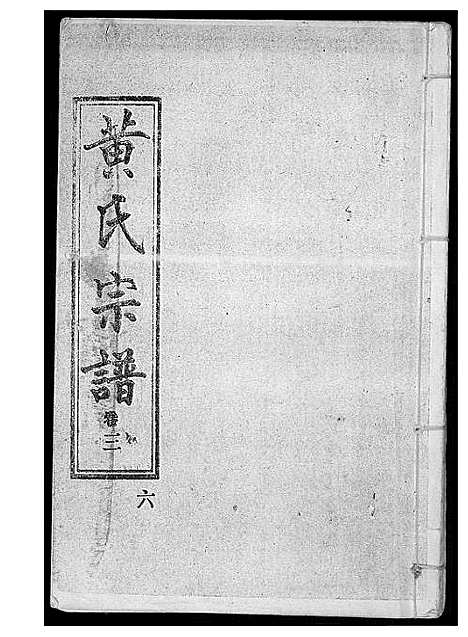 黄氏宗譜
卷三
六